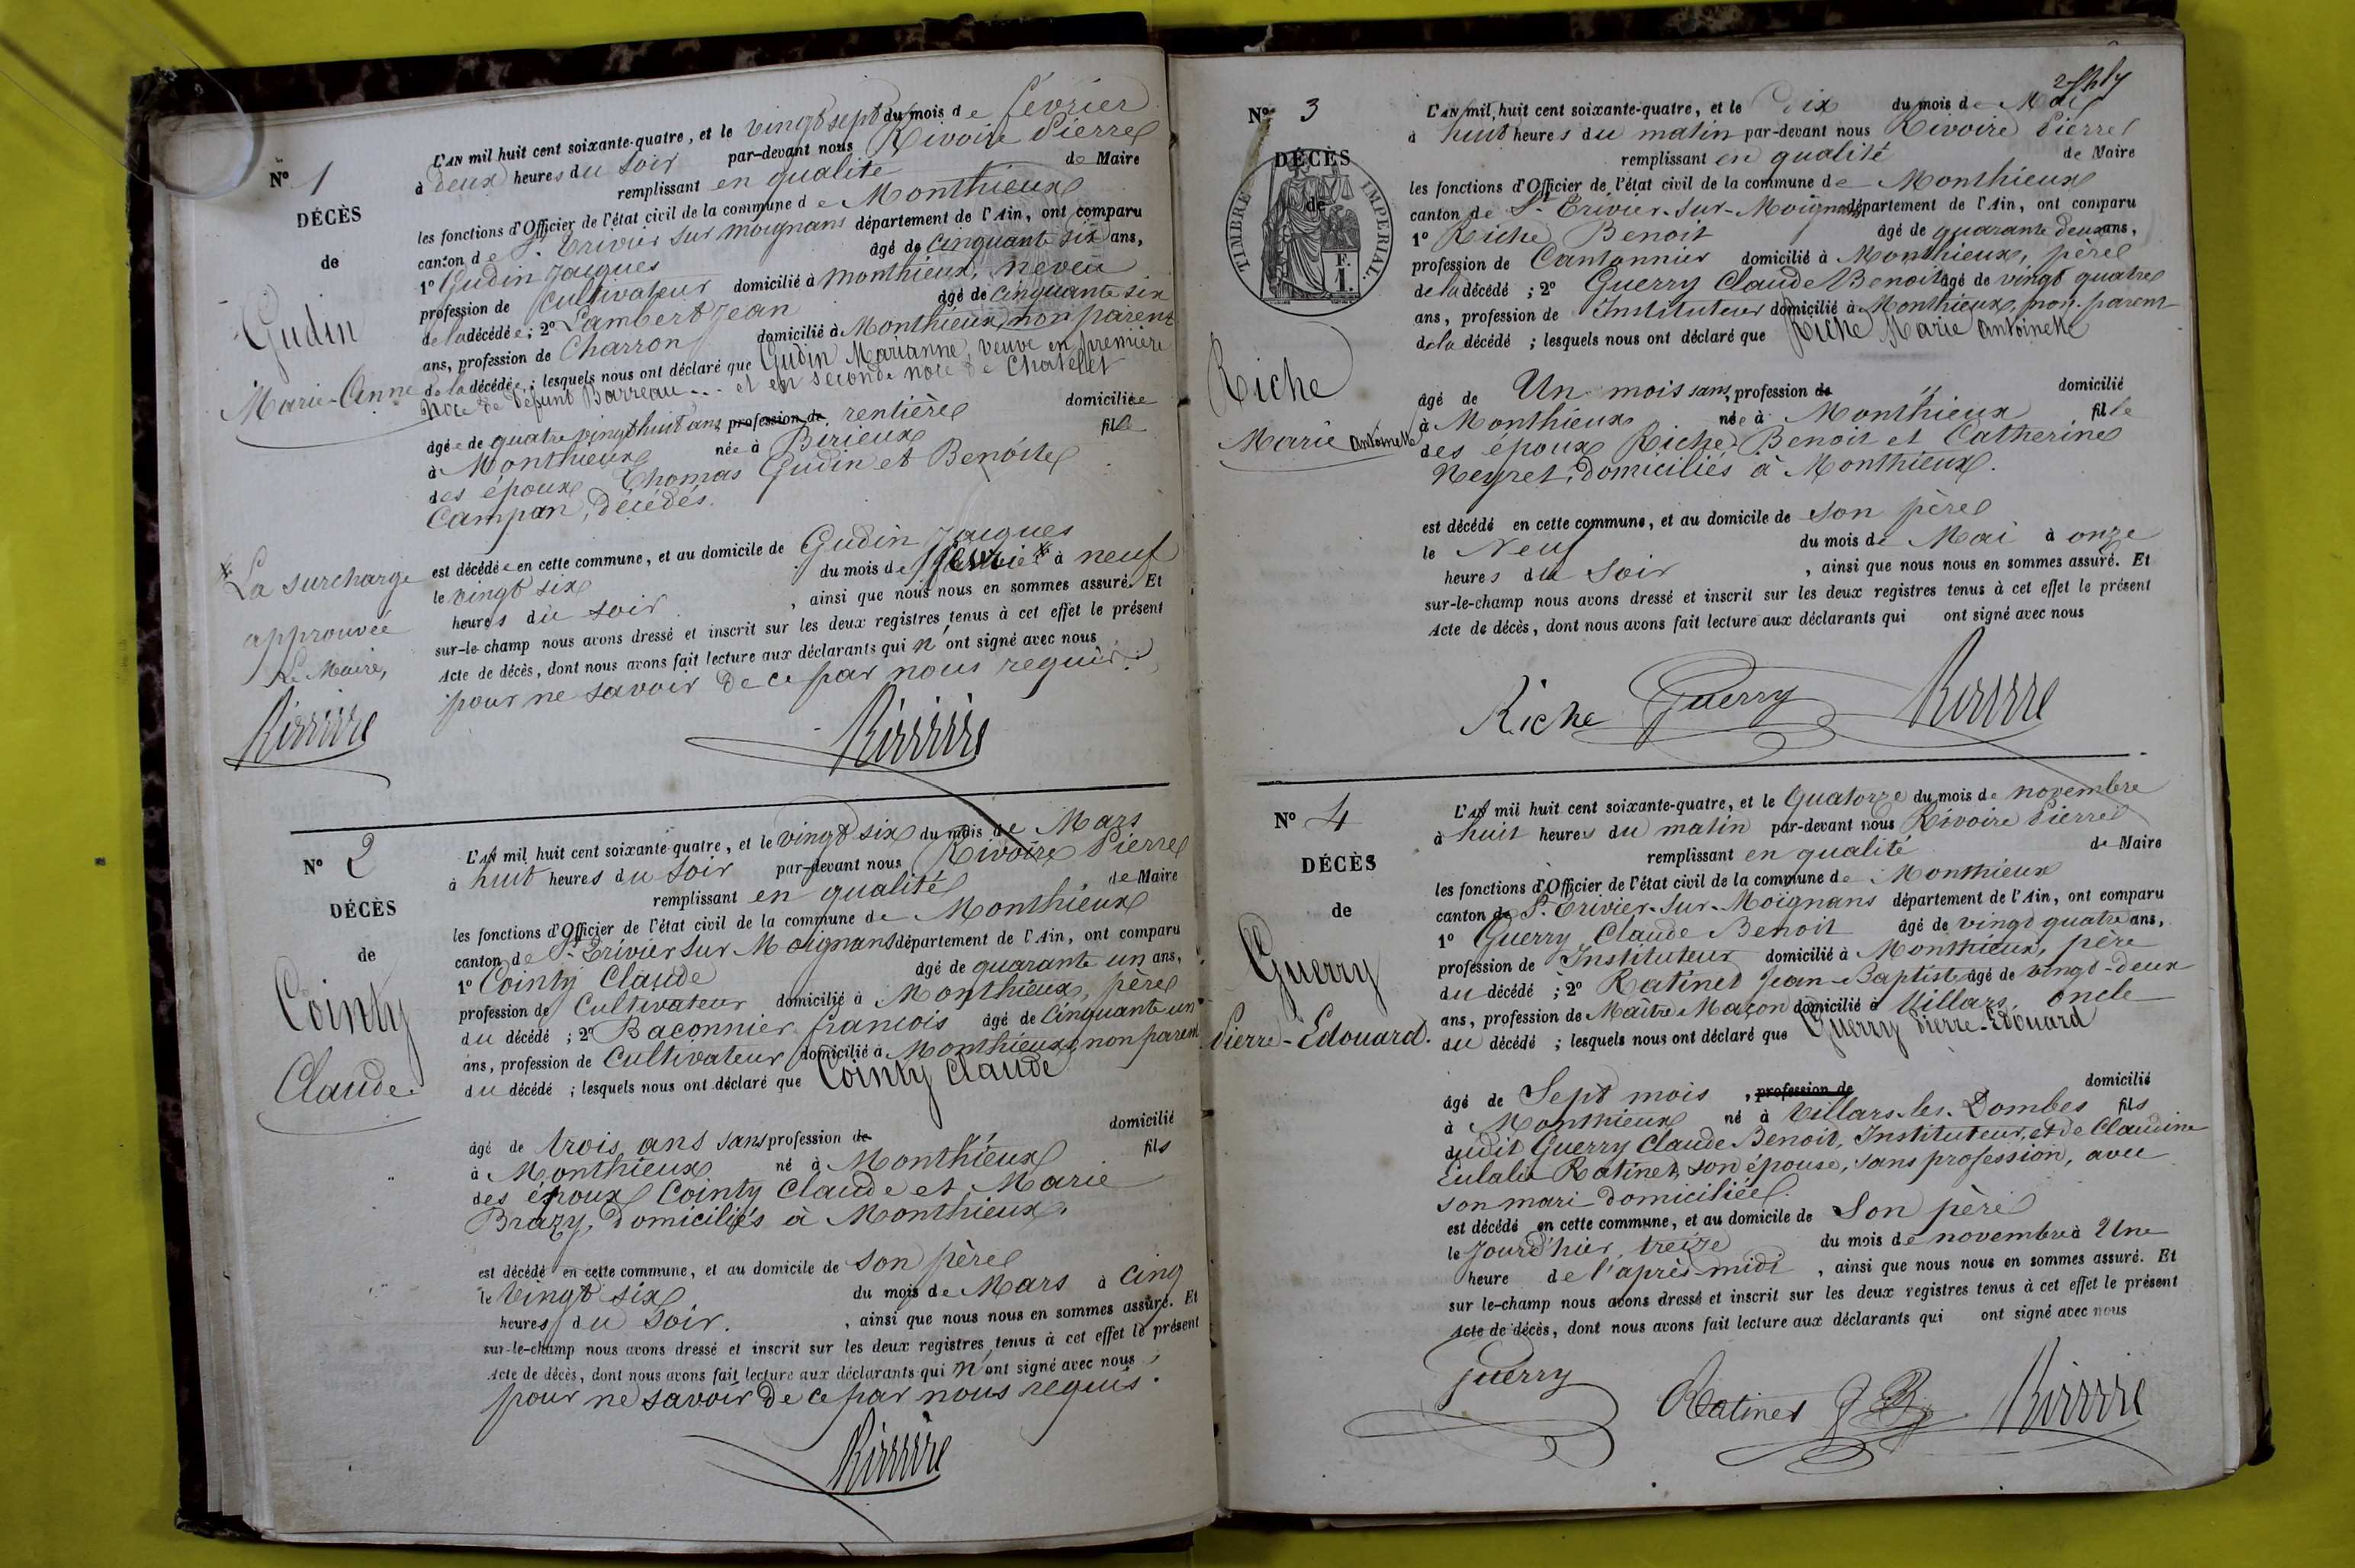 N° 1
DÉCÈS
de
Gudin
Marie-Anne
* La surcharge
approuvée
Le Maire,
Rivoire
L'AN mil huit cent soixante-quatre, et le vingt sept du mois de février
à deux heures du soir par-devant nous Rivoire Pierre
remplissant en qualité de Maire
les fonctions d'Officier de l'état civil de la commune de Monthieux
canton de St Trivier sur moignans département de l'Ain, ont comparu
1° Gudin Jacques âgé de cinquante six ans,
profession de cultivateur domicilié à Monthieux, neveu
de la décédée ; 2° Lambert Jean âgé de cinquante six
ans, profession de Charron domicilié à Monthieux, non parent
de la décédée ; lesquels nous ont déclaré que Gudin Marianne, veuve en première
noce de défunt Barreau... et en seconde noce de Chatelet
âgée de quatre vingt huit ans, profession de rentière domiciliée
à Monthieux née à Birieux fille
des époux Thomas Gudin et Benoîte
Campan, décédés.
est décédée en cette commune, et au domicile de Gudin Jacques
le vingt six du mois de fevrier * à neuf
heures du soir , ainsi que nous nous en sommes assuré. Et
sur-le-champ nous avons dressé et inscrit sur les deux registres tenus à cet effet le présent
Acte de décès, dont nous avons fait lecture aux déclarants qui n'ont signé avec nous
pour ne savoir de ce par nous requis.
Rivoire
N° 2
DÉCÈS
de
Cointy
Claude
L'AN mil huit cent soixante-quatre, et le vingt six du mois de Mars
à huit heures du soir par-devant nous Rivoire Pierre
remplissant en qualité de Maire
les fonctions d'Officier de l'état civil de la commune de Monthieux
canton de St Trivier sur Moignans département de l'Ain, ont comparu
1° Cointy Claude âgé de quarante un ans,
profession de Cultivateur domicilié à Monthieux, père
du décédé ; 2° Baconnier francois âgé de cinquante un
ans, profession de Cultivateur domicilié à Monthieux, non parent
du décédé ; lesquels nous ont déclaré que Cointy Claude
âgé de trois ans sans profession de " domicilié
à Monthieux né à Monthieux fils
des époux Cointy Claude et Marie
Brazy, domiciliés à Monthieux.
est décédé en cette commune, et au domicile de son père
le vingt six du mois de Mars à cinq
heures du soir. , ainsi que nous nous en sommes assuré. Et
sur-le-champ nous avons dressé et inscrit sur les deux registres tenus à cet effet le présent
Acte de décès, dont nous avons fait lecture aux déclarants qui n'ont signé avec nous
pour ne savoir de ce par nous requis.
Rivoire
N° 3
DÉCÈS
de
TIMBRE IMPÉRIAL
F.
1.
Riche
Marie Antoinette
L'AN mil huit cent soixante-quatre, et le dix du mois de Mai
à huit heures du matin par-devant nous Rivoire Pierre
remplissant en qualité de Maire
les fonctions d'Officier de l'état civil de la commune de Monthieux
canton de St Trivier-sur-Moignans département de l'Ain, ont comparu
1° Riche Benoit âgé de quarante deux ans,
profession de Cantonnier domicilié à Monthieux, père
de la décédé ; 2° Guerry Claude Benoit âgé de vingt quatre
ans, profession de Instituteur domicilié à Monthieux, non parent
de la décédé ; lesquels nous ont déclaré que Riche Marie Antoinette
âgé de Un mois sans, profession de " domicilié
à Monthieux née à Monthieux fille
des époux Riche Benoit et Catherine
Neyret, domiciliés à Monthieux.
est décédé en cette commune, et au domicile de son père
le Neuf du mois de Mai à onze
heures du soir , ainsi que nous nous en sommes assuré. Et
sur-le-champ nous avons dressé et inscrit sur les deux registres tenus à cet effet le présent
Acte de décès, dont nous avons fait lecture aux déclarants qui ont signé avec nous
Riche Guerry Rivoire
N° 4
DÉCÈS
de
Guerry
Pierre-Edouard.
L'AN mil huit cent soixante-quatre, et le Quatorze du mois de novembre
à huit heures du matin par-devant nous Rivoire Pierre
remplissant en qualité de Maire
les fonctions d'Officier de l'état civil de la commune de Monthieux
canton de St Trivier-sur-Moignans département de l'Ain, ont comparu
1° Guerry Claude Benoit âgé de vingt quatre ans,
profession de Instituteur domicilié à Monthieux, père
du décédé ; 2° Ratinet Jean-Baptiste âgé de vingt-deux
ans, profession de Maître Maçon domicilié à Villars, oncle
du décédé ; lesquels nous ont déclaré que Guerry Pierre-Edouard
âgé de Sept mois , profession de domicilié
à Monthieux né à Villars-les-Dombes fils
dudit Guerry Claude Benoit, Instituteur, et de Claudine
Eulalie Ratinet, son épouse, sans profession, avec
son mari domiciliée.
est décédé en cette commune, et au domicile de Son père
le jourd'hier, treize du mois de novembre à Une
heure de l'après-midi , ainsi que nous nous en sommes assuré. Et
sur le-champ nous avons dressé et inscrit sur les deux registres tenus à cet effet le présent
Acte de décès, dont nous avons fait lecture aux déclarants qui ont signé avec nous
Guerry Ratinet J B Rivoire